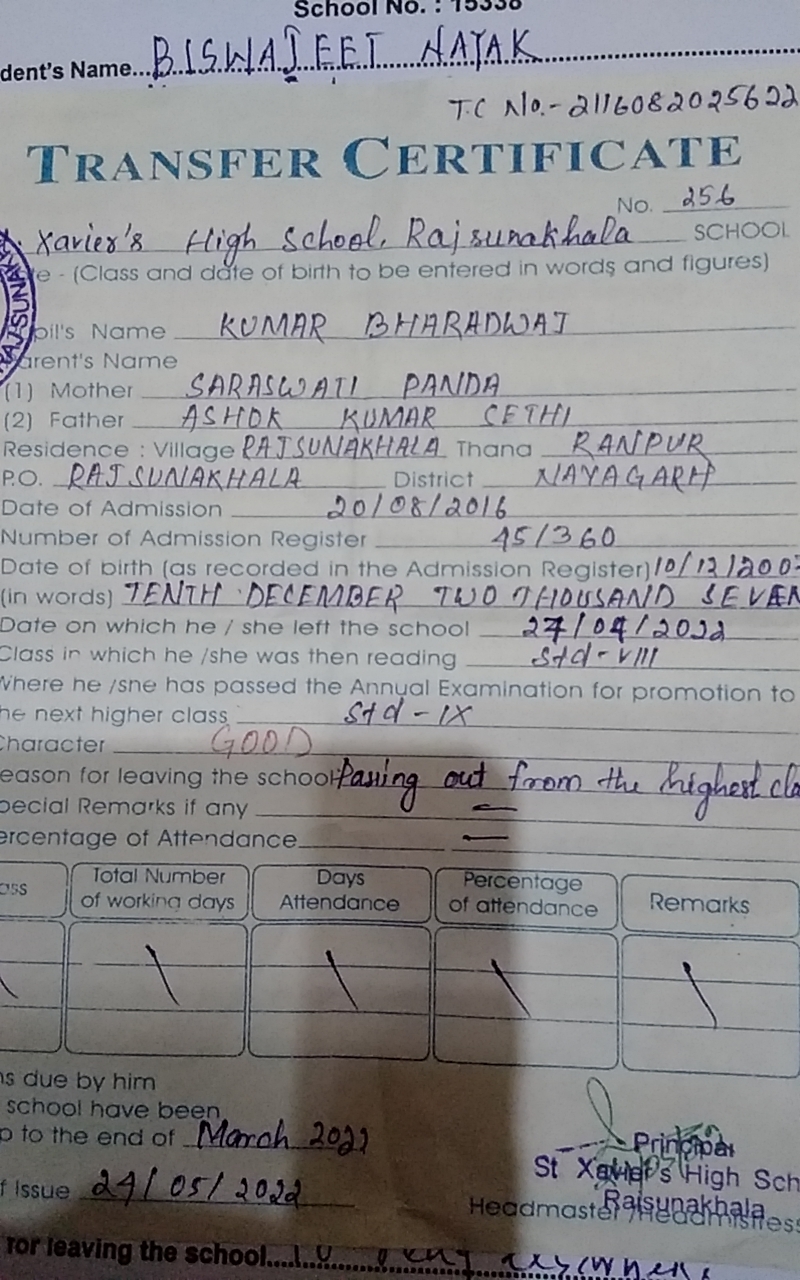 School No. : 15338
dent's Name... BISWAJEET NAYAK
T.C No.- 2116082025622
TRANSFER CERTIFICATE
No. 256
Xavier's High School, Rajsunakhala SCHOOL
e - (Class and date of birth to be entered in words and figures)
pil's Name KUMAR BHARADWAJ
arent's Name
(1) Mother SARASWATI PANDA
(2) Father ASHOK KUMAR SETHI
Residence : Village RAJSUNAKHALA Thana RANPUR
P.O. RAJSUNAKHALA District NAYAGARH
Date of Admission 20/08/2016
Number of Admission Register 45/360
Date of birth (as recorded in the Admission Register) 10/12/2007
(in words) TENTH DECEMBER TWO THOUSAND SEVEN
Date on which he / she left the school 27/04/2022
Class in which he /she was then reading Std-VIII
Where he /she has passed the Annual Examination for promotion to
he next higher class Std-IX
Character GOOD
eason for leaving the school Passing out from the highest cla
pecial Remarks if any —
ercentage of Attendance —
ass Total Number of working days Days Attendance Percentage of attendance Remarks
s due by him
school have been
p to the end of March 2022
f Issue 24/05/2022
Principal
St Xavier's High Sch
Rajsunakhala
Headmaster /Headmistress
for leaving the school....